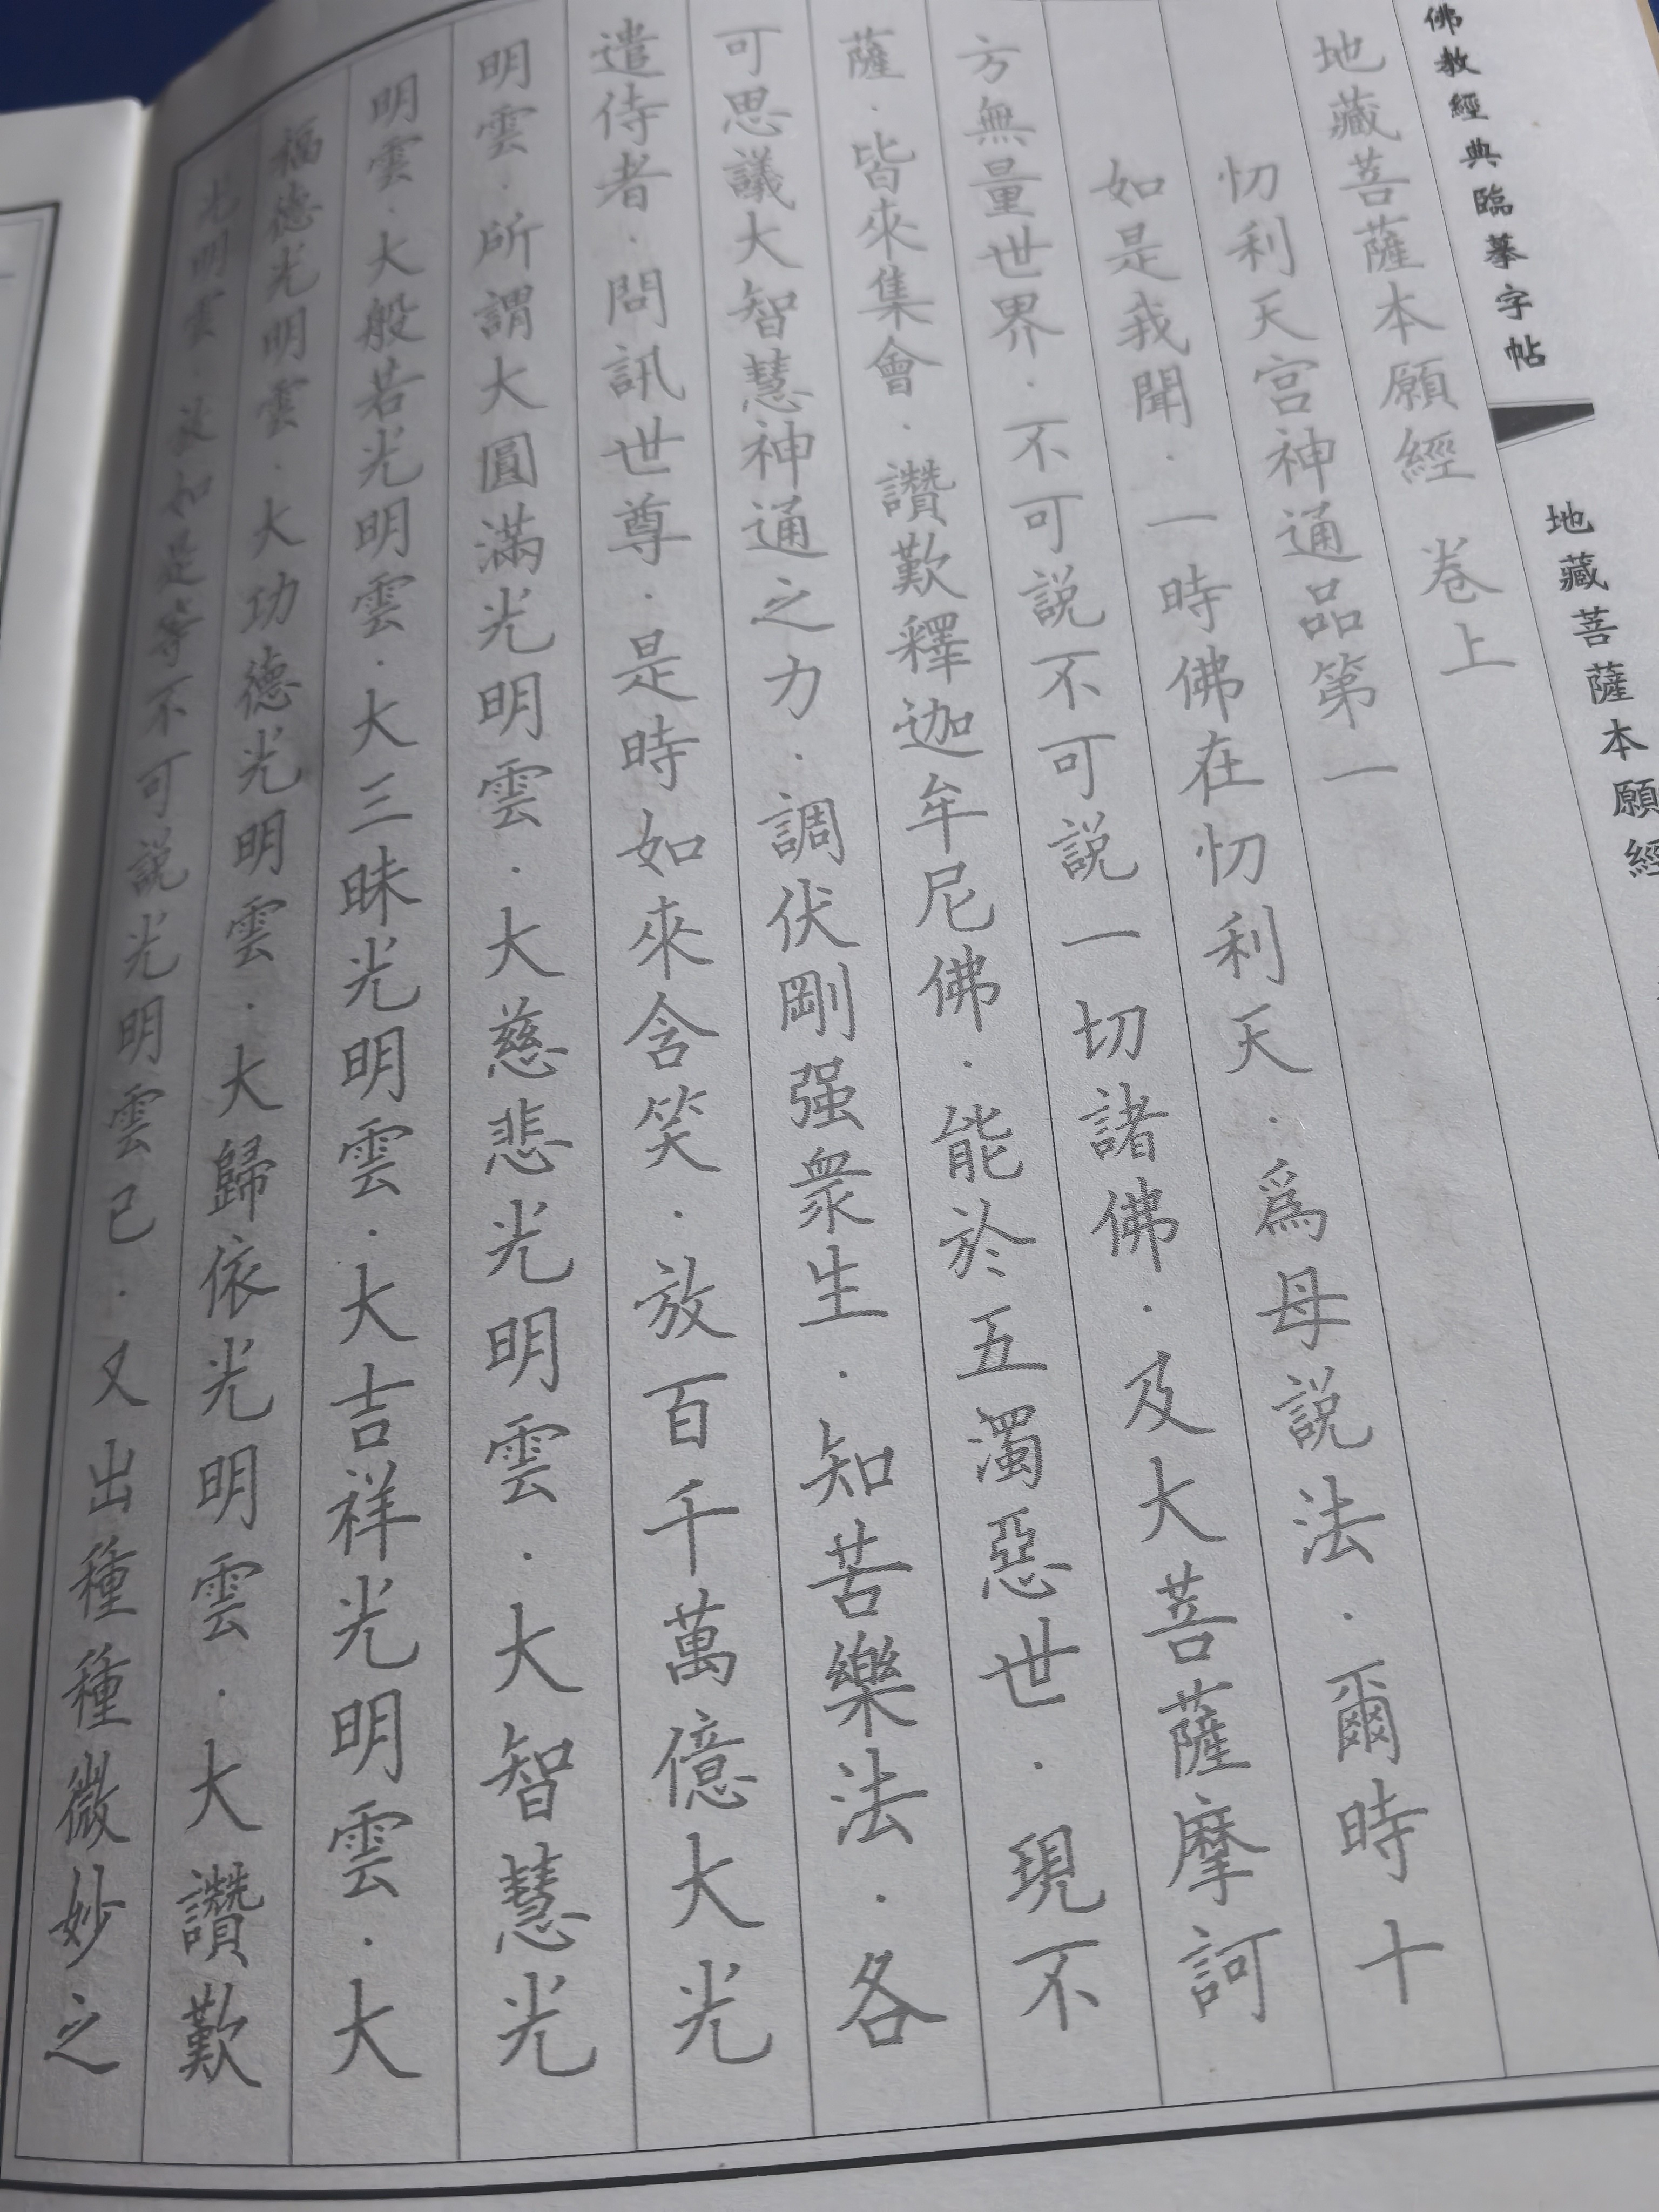 佛教經典臨摹字帖
地藏菩薩本願經
地藏菩薩本願經 卷上
忉利天宫神通品第一
如是我聞．一時佛在忉利天．爲母説法．爾時十
方無量世界．不可説不可説一切諸佛．及大菩薩摩訶
薩．皆來集會．讚歎釋迦牟尼佛．能於五濁惡世．現不
可思議大智慧神通之力．調伏剛强衆生．知苦樂法．各
遣侍者．問訊世尊．是時如來含笑．放百千萬億大光
明雲．所謂大圓滿光明雲．大慈悲光明雲．大智慧光
明雲．大般若光明雲．大三昧光明雲．大吉祥光明雲．大
福德光明雲．大功德光明雲．大歸依光明雲．大讚歎
光明雲．放如是等不可説光明雲已．又出種種微妙之